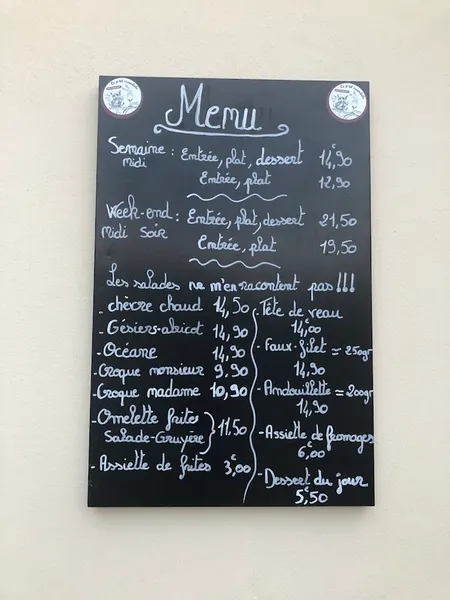 Menu
Semaine : Entrée, plat, dessert 14,90
Midi
Entrée, plat 12,90
Week-end : Entrée, plat, dessert 21,50
Midi Soir
Entrée, plat 19,50
Les salades ne m'en racontent pas !!!
- chèvre chaud 14,50
- Gésiers-abricot 14,90
- Océane 14,90
- Croque monsieur 9,90
- Croque madame 10,90
- Omelette frites
Salade-Gruyère } 11,50
- Assiette de frites 3,00
- Tête de veau
14,00
- Faux-filet = 250gr
14,90
- Andouillette = 200gr
14,90
- Assiette de fromages
6,00
- Dessert du jour
5,50